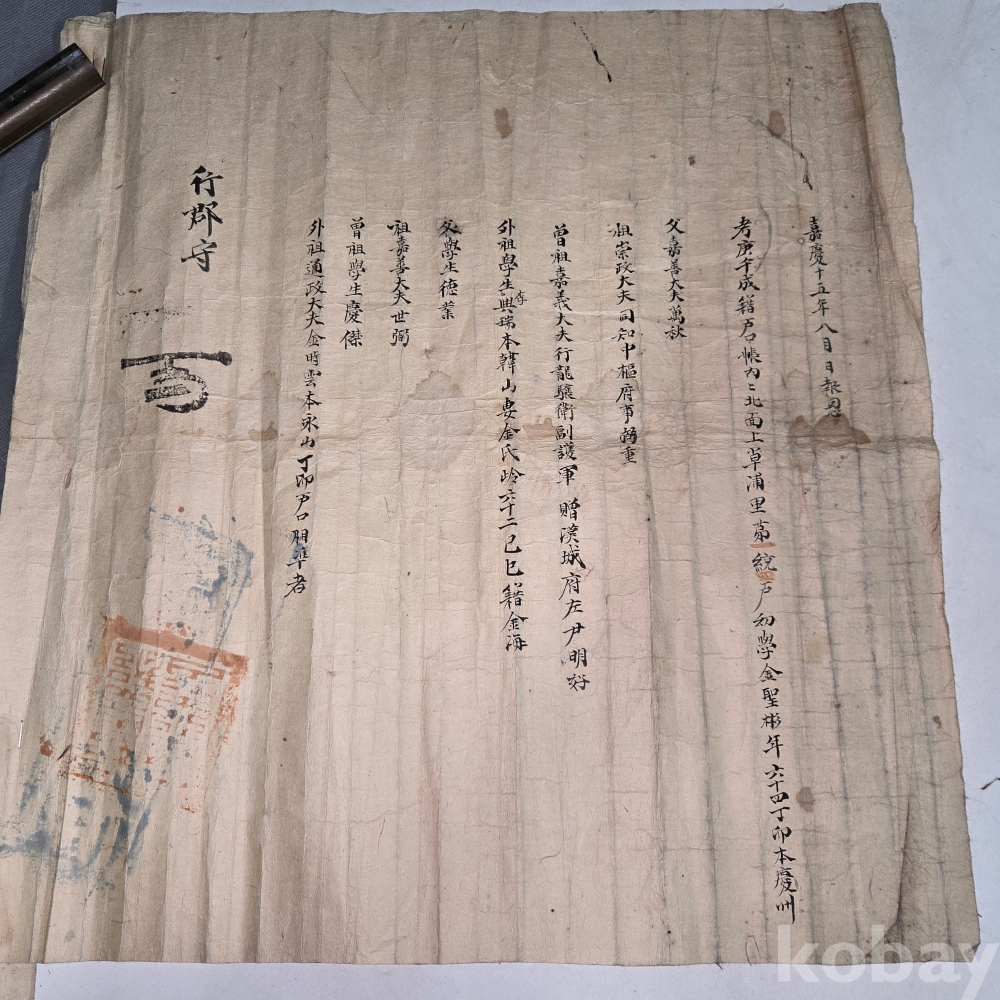 嘉慶十五年八月 日報恩
考庚午成籍戶口帳內北面上草浦里第一統 戶幼學金聖彬年六十四丁卯本慶州
父嘉善大夫萬秋
祖崇政大夫同知中樞府事 重
曾祖嘉義大夫行龍驤衛副護軍 贈漢城府左尹明好
外祖學生李興瑞本韓山妻金氏齡六十二己巳籍金海
父學生德業
祖嘉善大夫世弼
曾祖學生慶傑
外祖通政大夫金時雲本永山丁卯戶口相準者
行郡守
kobay